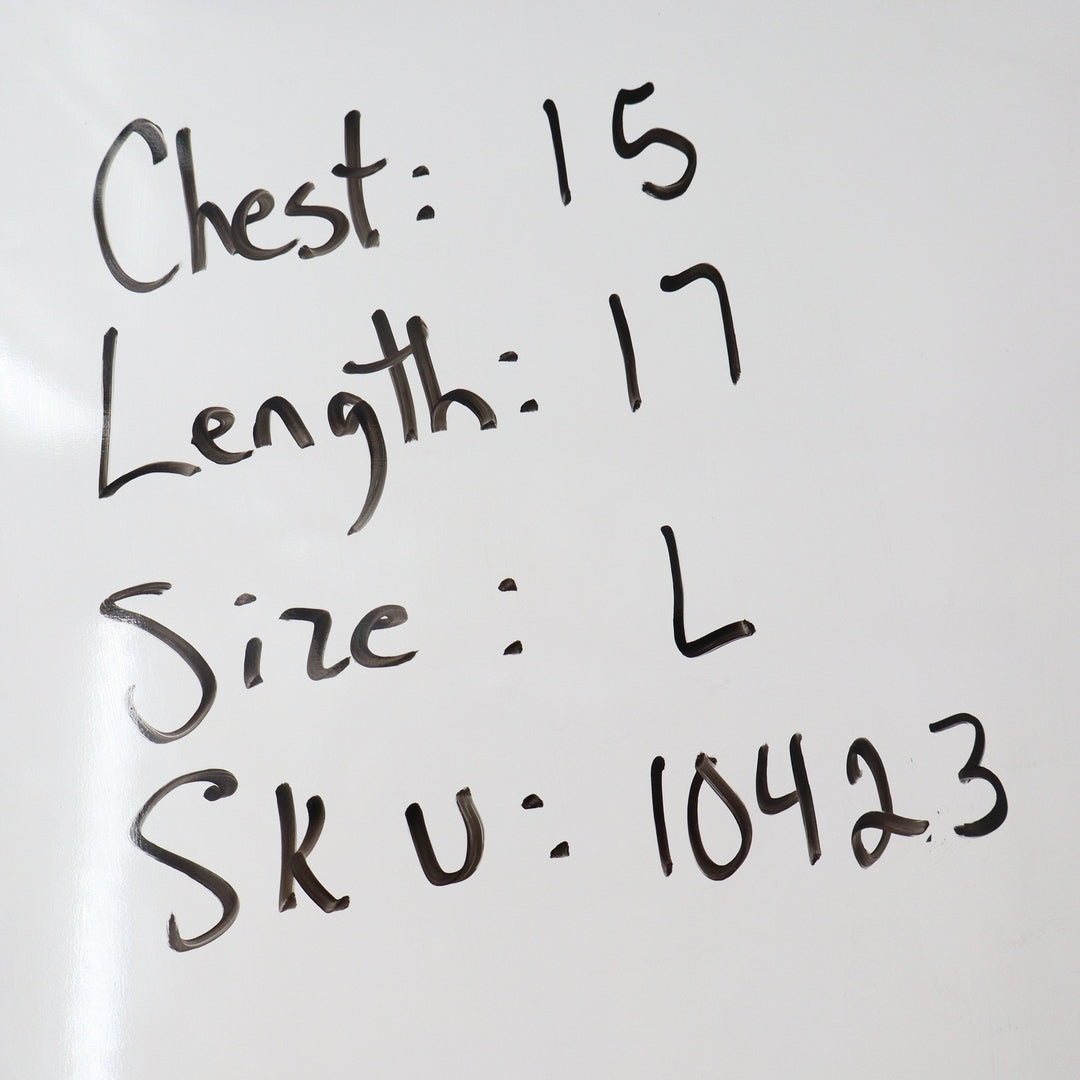 Chest: 15
Length: 17
Size: L
SKU: 10423